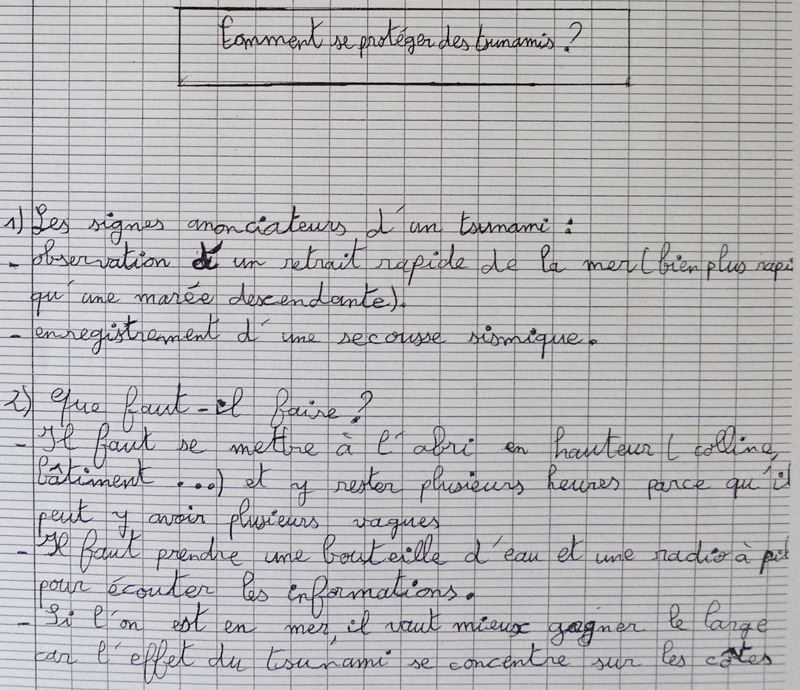 Comment se protéger des tsunamis ?
1) Les signes anonciateurs d'un tsunami :
- observation d'un retrait rapide de la mer (bien plus rapi
qu'une marée descendante).
- enregistrement d'une secousse sismique.
2) Que faut-il faire ?
- Il faut se mettre à l'abri en hauteur ( colline,
bâtiment ...) et y rester plusieurs heures parce qu'il
peut y avoir plusieurs vagues
- Il faut prendre une bouteille d'eau et une radio à pil
pour écouter les informations.
- Si l'on est en mer, il vaut mieux gagner le large
car l'effet du tsunami se concentre sur les côtes